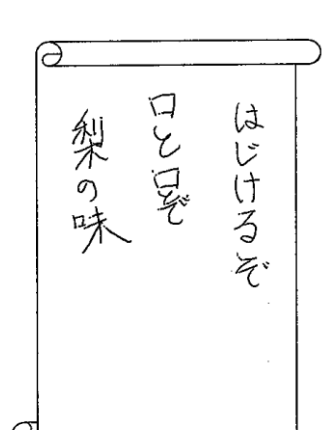 はじけるぞ
口と口
梨の味